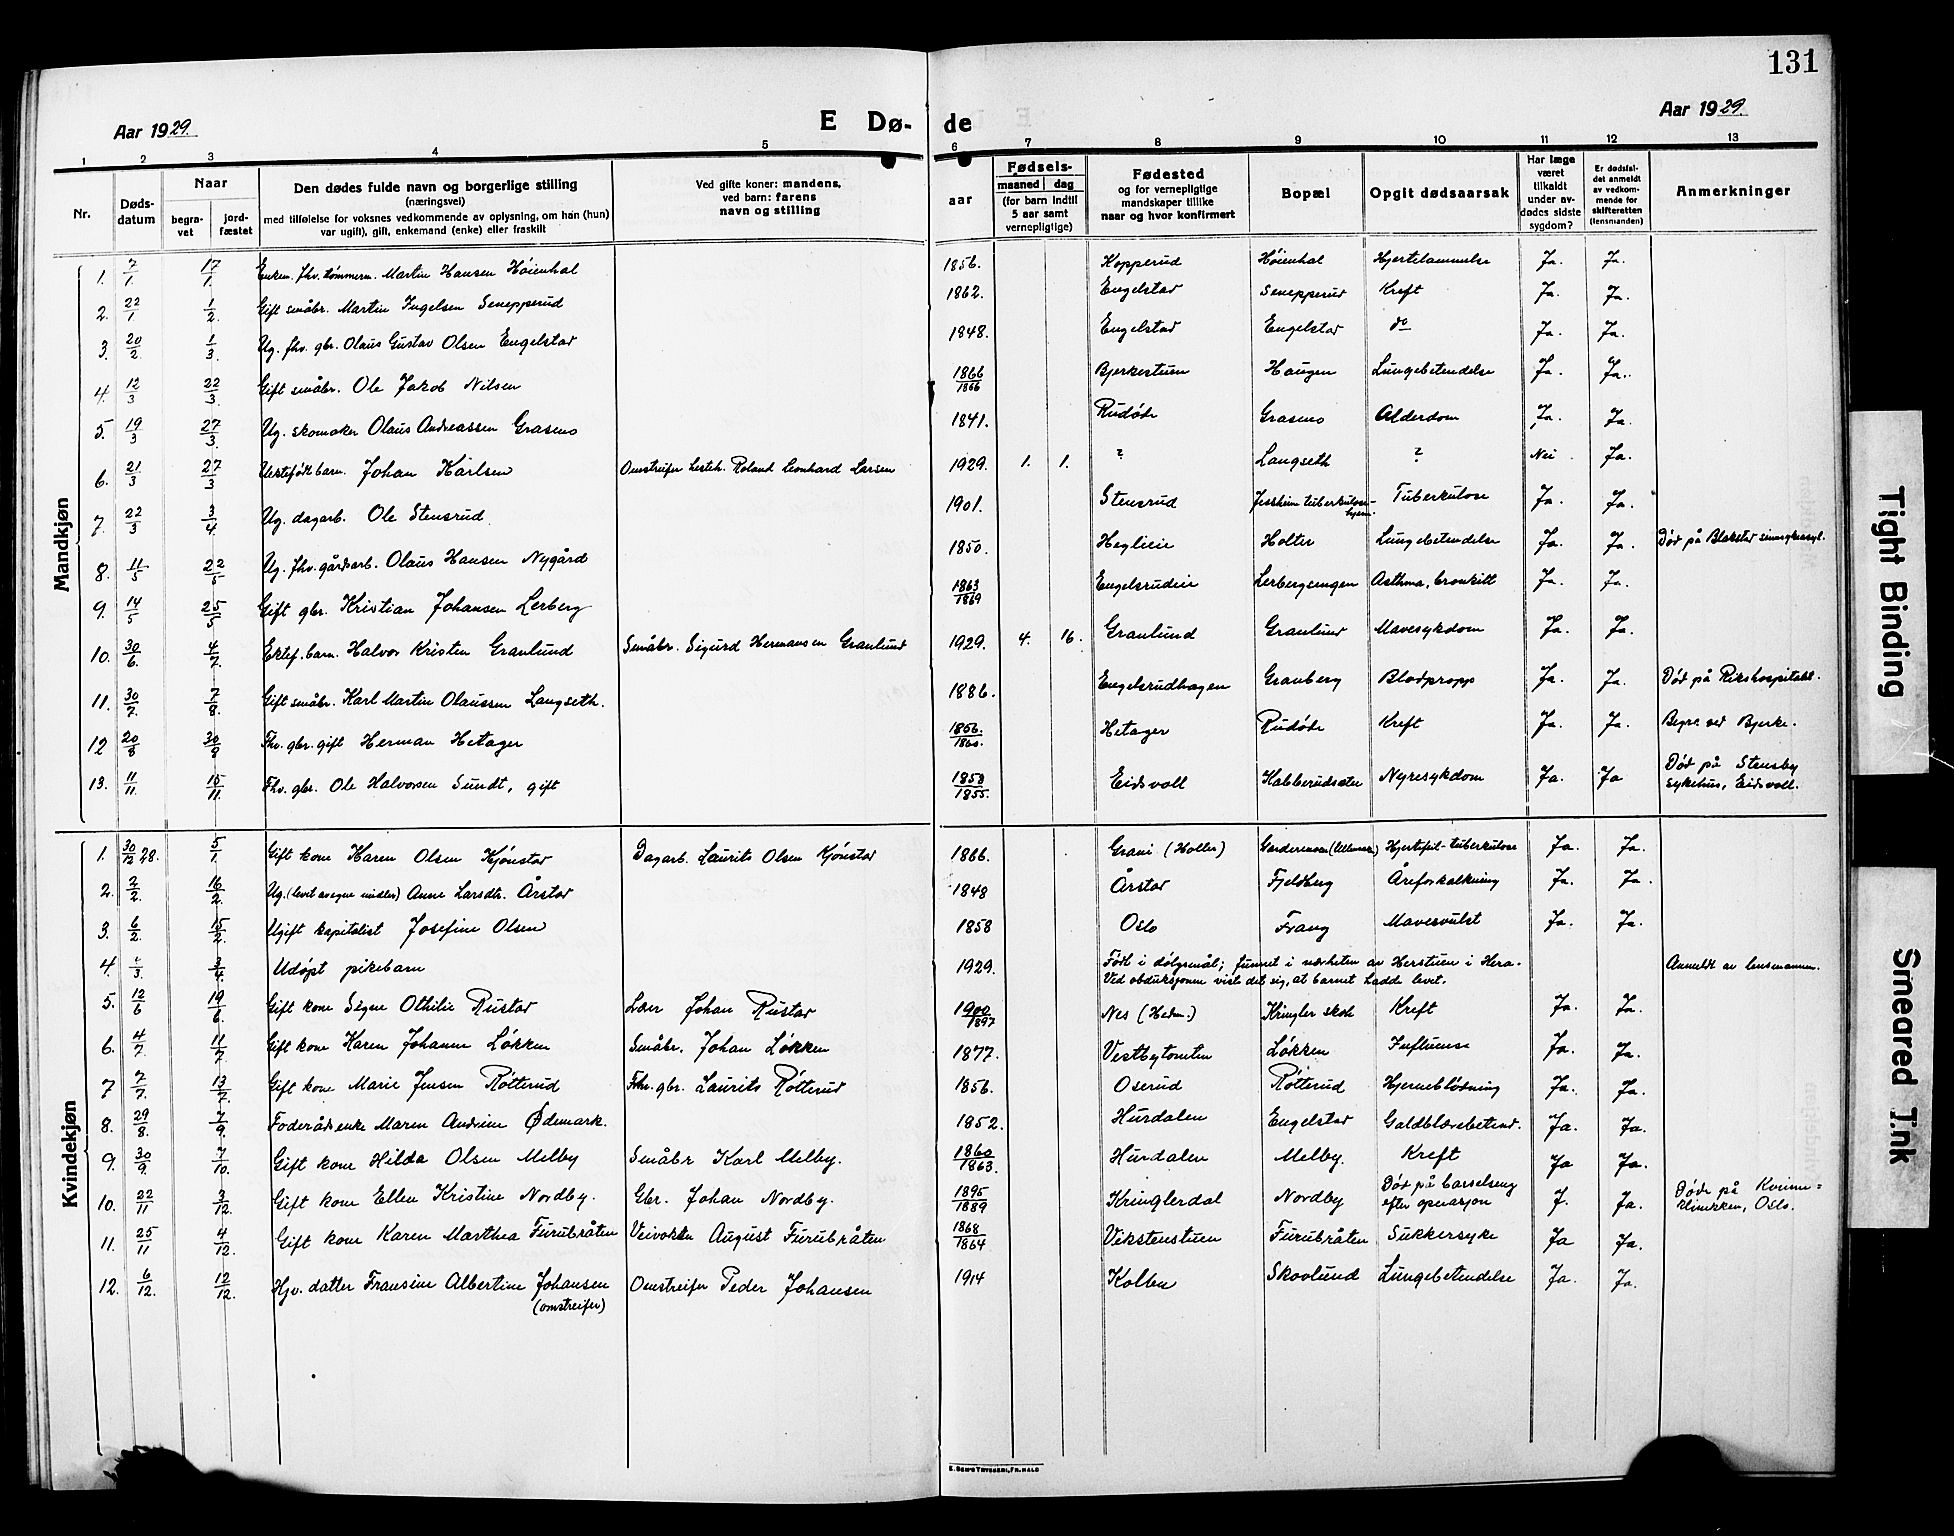 131
Aar 1929.
E Dø-
de
Aar 1929.
1 2 3 4 5 6 7 8 9 10 11 12 13
Nr.
Døds-
datum
Naar
begra-
vet
jord-
fæstet
Den dødes fulde navn og borgerlige stilling
(næringsvei)
med tilføielse for voksnes vedkommende av oplysning, om han (hun)
var ugift), gift, enkemand (enke) eller fraskilt
Ved gifte koner: mandens,
ved barn: farens
navn og stilling
aar
Fødsels-
maaned dag
(for barn indtil
5 aar samt
vernepligtige)
Fødested
og for vernepligtige
mandskaper tillike
naar og hvor konfirmert
Bopæl
Opgit dødsaarsak
Har læge
været
tilkaldt
under av-
dødes sidste
sygdom?
Er dødsfal-
det anmeldt
av vedkom-
mende for
skifteretten
(lensmanden)
Anmerkninger
Mandkjøn
1. 7/1. 17/1. Enkem. fhv. tømmerm. Martin Hansen Høienhal 1856. Kopperud Høienhal Hjertelammelse Ja. Ja.
2. 22/1 1/2. Gift småbr. Martin Ingelsen Senepperud 1862. Engelstad Senepperud Kreft Ja. Ja.
3. 20/2. 1/3. Ug. fhv. gbr. Olaus Gustav Olsen Engelstad 1848. Engelstad Engelstad do Ja. Ja.
4. 12/3 22/3. Gift småbr. Ole Jakob Nilsen 1866/1866 Bjerkestuen Haugen Lungebetendelse Ja. Ja.
5. 19/3 27/3. Ug. skomaker Olaus Andreassen Grasmo 1841. Rudøde Grasmo Alderdom Ja. Ja.
6. 21/3 27/3 Uektefødt barn. Johan Karlsen Omstreifer Roland Leonhard Larsen 1929. 1. 1. ? Langseth ? Nei. Ja.
7. 22/3 3/4 Ug. dagarb. Ole Stensrud. 1901. Stensrud Jessheim tuberkulose-hjem. Tuberkulose Ja. Ja.
8. 11/5 22/5 Ug. fhv. gårdsarb. Olaus Hansen Nygård 1850. Heglieie Holter Lungebetendelse Ja. Ja. Død på Blakstad sinnsykeasyl.
9. 14/5 25/5 Gift gbr. Kristian Johansen Lerberg 1863/1869 Engelsrudeie Lerbergsengen Asthma, bronkitt Ja. Ja.
10. 30/6. 4/7. Ektef. barn. Halvor Kristen Granlund Småbr. Sigurd Hermansen Granlund 1929. 4. 16. Granlund Granlund Mavesykdom Ja. Ja.
11. 30/7. 7/8. Gift småbr. Karl Martin Olaussen Langseth. 1886. Engelsrudhagen Granberg Blodpropp Ja. Ja. Død på Rikshospitalet.
12 20/8 30/8 Fhv. gbr. gift Herman Hetager 1856./1860. Hetager Rudøde Kreft Ja. Ja. Begr. ved Bjerke.
13. 11/11. 15/11. Fhv. gbr. Ole Halvorsen Sundt, gift 1858/1855. Eidsvoll Habberudsæter Nyresykdom Ja. Ja Død på Stensby
sykehus, Eidsvoll.
Kvindekjøn
1. 30/12 28. 5/1. Gift kone Karen Olsen Kjønstad Dagarb. Laurits Olsen Kjønstad 1866. Grani (Holter) Gardermoen (Ullensak.) Hjertefeil-tuberkulose Ja. Ja.
2. 2/2. 16/2. Ug. (levet av egne midler) Anne Larsdtr. Årstad 1848 Årstad Fjeldberg Åreforkalkning Ja. Ja.
3. 6/2. 15/2. Ugift kapitalist Josefine Olsen 1858 Oslo Frang Mavesvulst Ja. Ja.
4. 3/4. Udøpt pikebarn 1929. Født i dølgsmål; funnet i nærheten av Herstuen i Hera.
Ved obduksjonen viste det sig, at barnet hadde levet. Anmeldt av lensmannen.
5. 12/6 19/6. Gift kone Signe Othilie Rustad Lær Johan Rustad 1900/1897 Nes (Hedm.) Kringler skole Kreft Ja. Ja.
6. 4/7. 11/7 Gift kone Karen Johanne Løkken Småbr. Johan Løkken 1877. Vestbytomten Løkken Influensa Ja. Ja.
7 7/7. 13/7. Gift kone Marie Jensen Røtterud Fhv. gbr. Laurits Røtterud 1856. Oserud Røtterud Hjerneblødning Ja. Ja.
8. 29/8. 7/9. Foderådsenke Maren Andrine Ødemark. 1852. Hurdalen Engelstad Galdeblærebetend. Ja. Ja.
9. 30/9. 7/10. Gift kone Hilda Olsen Melby Småbr Karl Melby. 1860/1863. Hurdalen Melby. Kreft Ja Ja.
10. 22/11 3/12. Gift kone Ellen Kristine Nordby. Gbr. Johan Nordby. 1895/1889 Kringlerdal Nordby Død på barselseng
efter operasjon J. Ja. Døde på Kvinne=
klinikken, Oslo.
11. 25/11 4/12. Gift kone Karen Marthea Furubråten Veivokter August Furubråten 1868/1864 Vikstenstuen Furubråten Sukkersyke Ja Ja.
12. 6/12. 12/12. Hjv. datter Fransine Albertine Johansen
(omstreifer) Omstreifer Peder Johansen 1914 Kolben Skovlund Lungebetendelse Ja. Ja.
E. SEM'S TRYKKERI, FR.HALD
Tight Binding
Smeared Ink